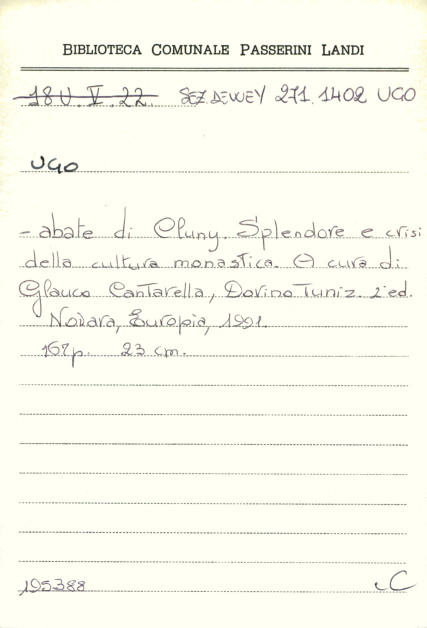 BIBLIOTECA COMUNALE PASSERINI LANDI
18U.V.22. SEZ.DEWEY 271.1402 UGO
UGO
- abate di Cluny. Splendore e crisi
della cultura monastica. A cura di
Glauco Cantarella, Dorino Tuniz. 2ªed.
Novara, Europia, 1991.
167p. 23 cm.
195388 C